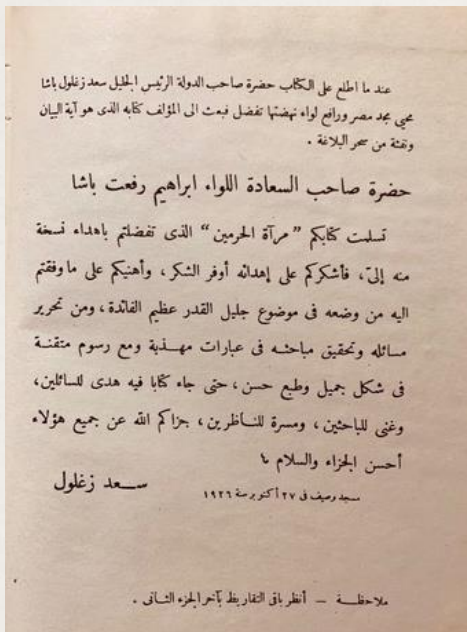 عند ما اطلع على الكتاب حضرة صاحب الدولة الرئيس الجليل سعد زغلول باشا
محيي مجد مصر ورافع لواء نهضتها تفضل فبعث الى المؤلف كتابه الذى هو آية البيان
ونفثة من سحر البلاغة .
حضرة صاحب السعادة اللواء ابراهيم رفعت باشا
تسلمت كتابكم "مرآة الحرمين" الذى تفضلتم باهداء نسخة
منه إلىّ، فأشكركم على إهدائه أوفر الشكر، وأهنيكم على ما وفقتم
اليه من وضعه فى موضوع جليل القدر عظيم الفائدة، ومن تحرير
مسائله وتحقيق مباحثه فى عبارات مهذبة ومع رسوم متقنة
فى شكل جميل وطبع حسن، حتى جاء كتابا فيه هدى للسائلين،
وغنى للباحثين، ومسرة للناظرين، جزاكم الله عن جميع هؤلاء
أحسن الجزاء والسلام ؟
سعد زغلول
مسجد وصيف فى ٢٧ أكتوبر سنة ١٩٢٦
ملاحظة — أنظر باقى التقاريظ بآخر الجزء الثانى .